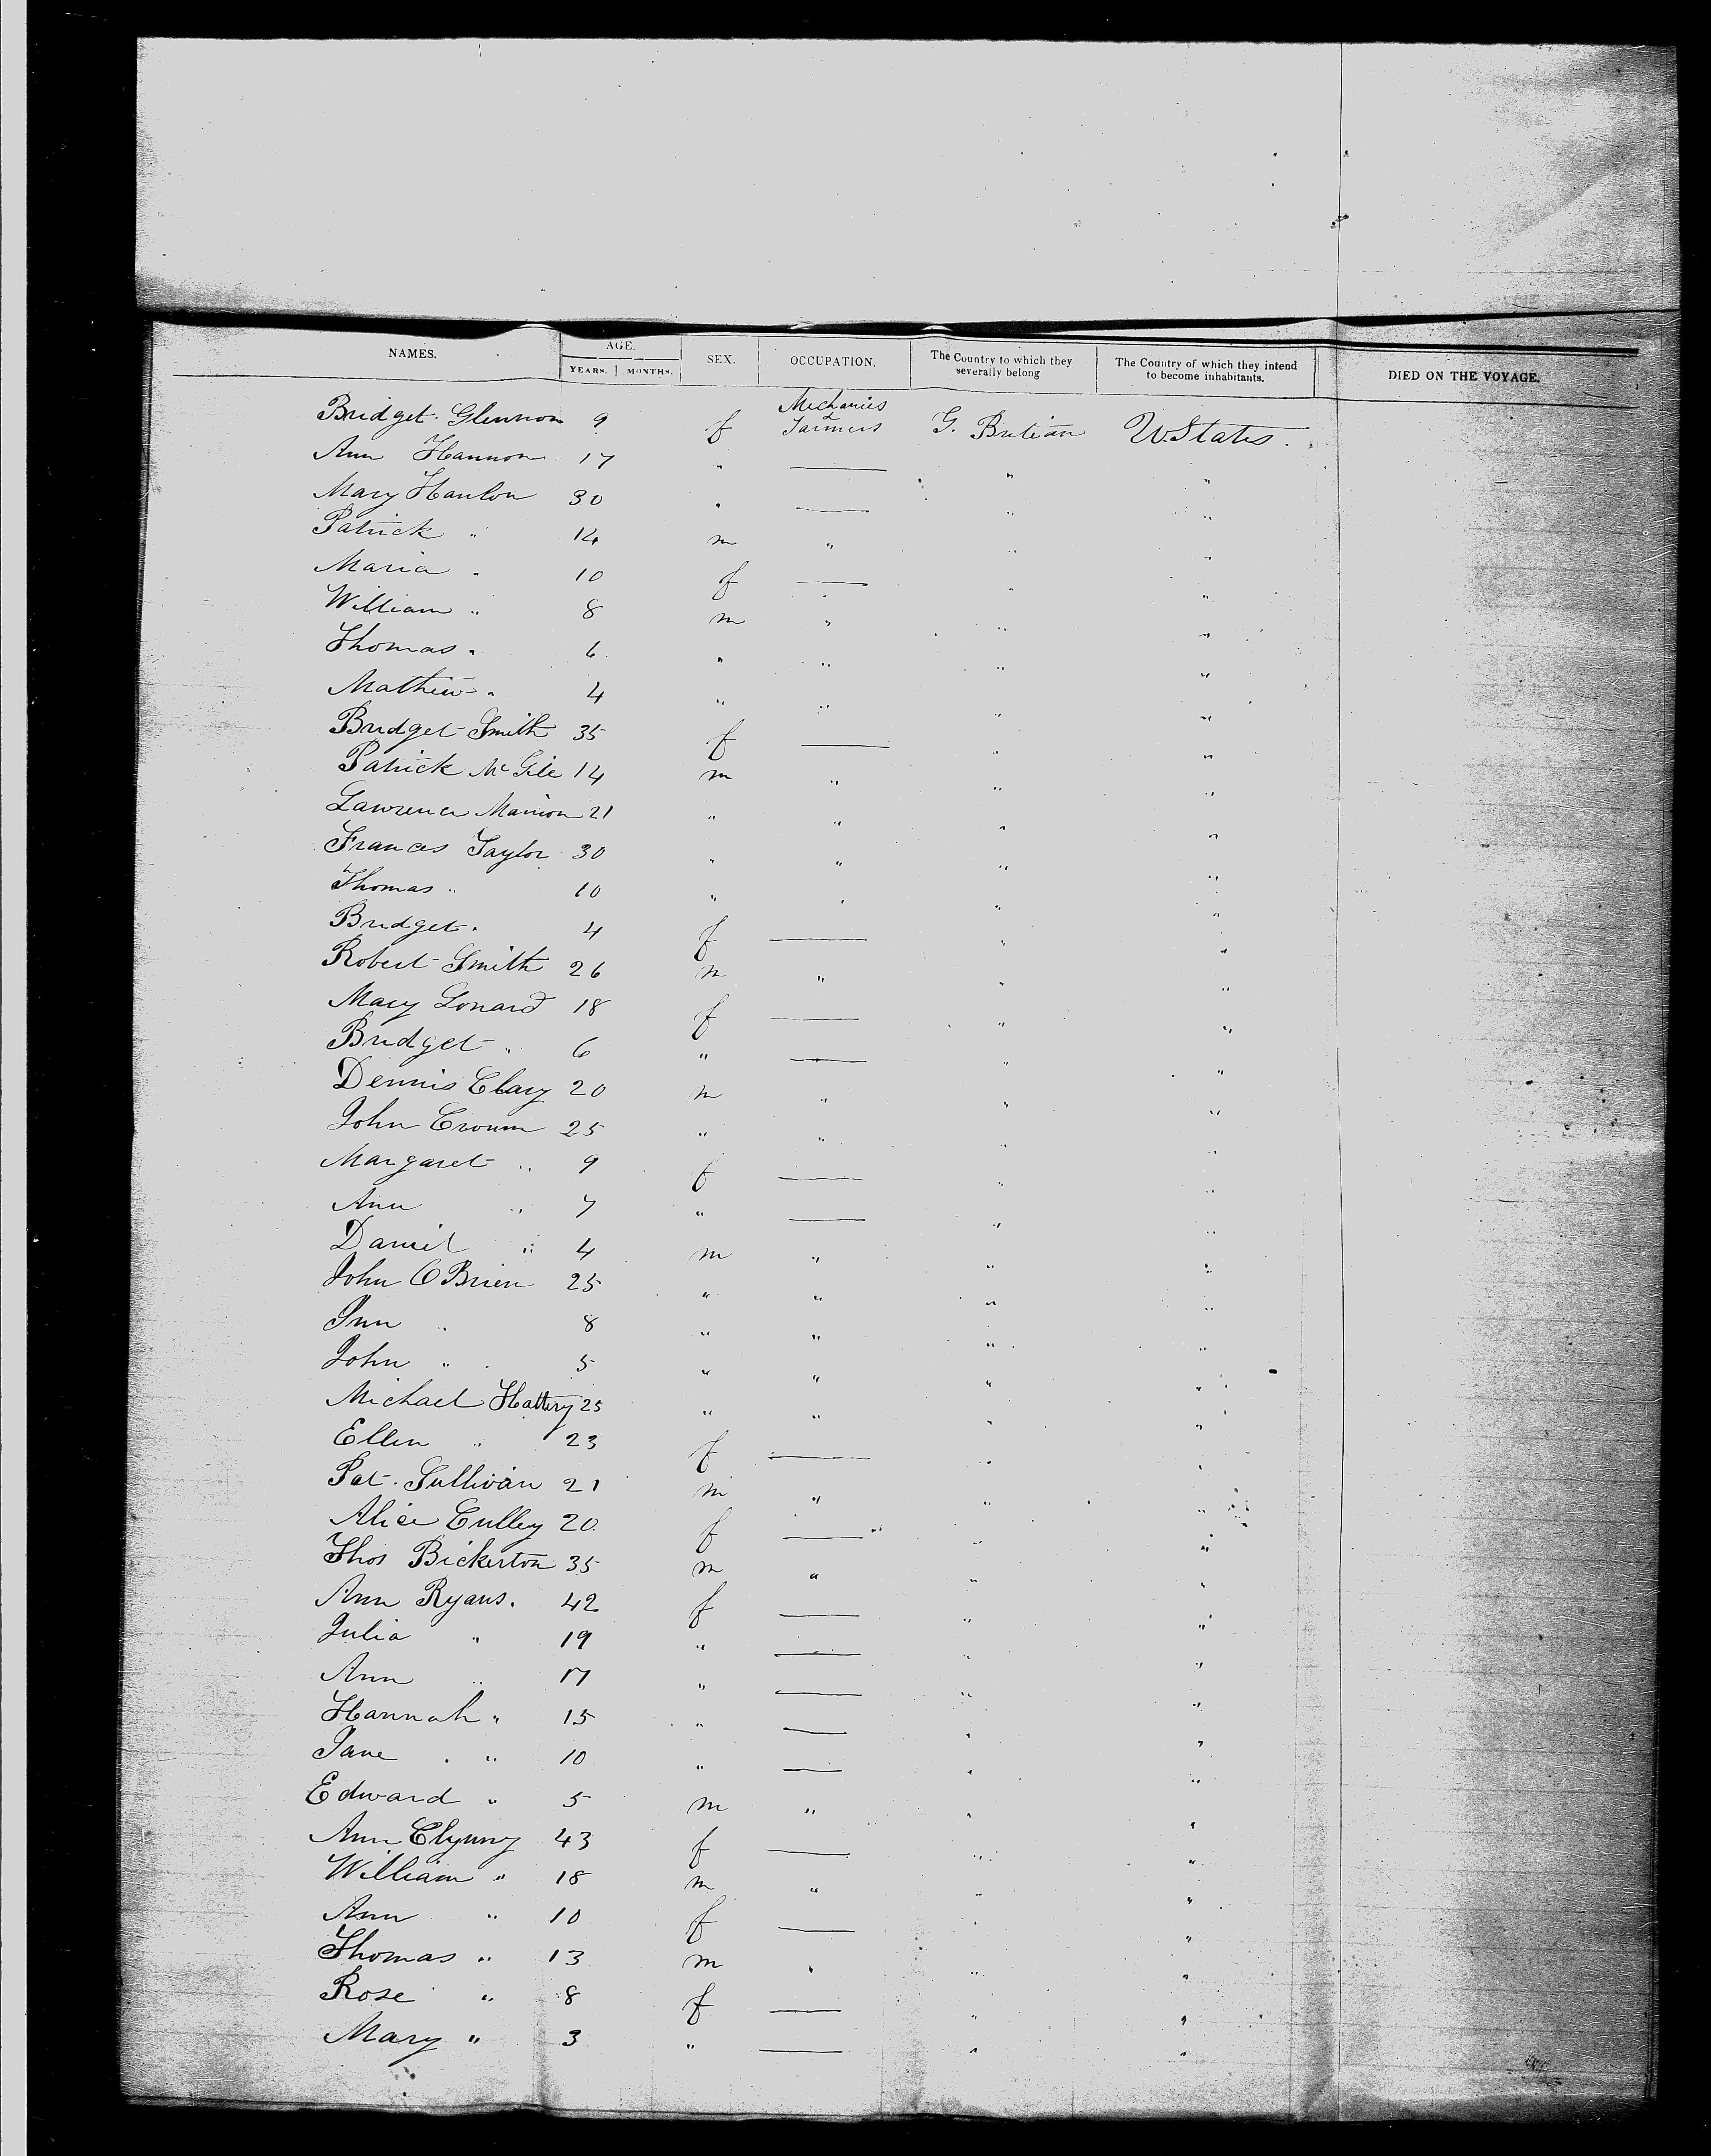 NAMES. AGE. YEARS. MONTHS. SEX. OCCUPATION. The Country to which they severally belong The Country of which they intend to become inhabitants. DIED ON THE VOYAGE.
Bridget Glennon 9 f Mechanics & Farmers G. Britian U. States.
Ann Hannon 17 " — " "
Mary Hanlon 30 " — " "
Patrick " 14 m " " "
Maria " 10 f — " "
William " 8 m " " "
Thomas " 6 " " " "
Mathew " 4 " " " "
Bridget Smith 35 f — " "
Patrick 14 m " " "
Lawrence Manion 21 " " " "
Frances Taylor 30 " " " "
Thomas " 10 " " " "
Bridget " 4 f — " "
Robert Smith 26 m " " "
Mary Lonard 18 f — " "
Bridget " 6 " — " "
Dennis Clary 20 m " " "
John 25 " " " "
Margaret " 9 f — " "
Ann " 7 " — " "
Daniel " 4 m " " "
John O Brien 25 " " " "
" 8 " " " "
John " 5 " " " "
Michael Hattery 25 " " " "
Ellen " 23 f — " "
Pat. Sullivan 21 m " " "
Alice Culley 20 f — " "
Thos Bickerton 35 m " " "
Ann Ryans. 42 f — " "
Julia " 19 " — " "
Ann " 17 " — " "
Hannah " 15 " — " "
Jane " 10 " — " "
Edward " 5 m " " "
Ann 43 f — " "
William " 18 m " " "
Ann " 10 f — " "
Thomas " 13 m " " "
Rose " 8 f — " "
Mary " 3 " — " "